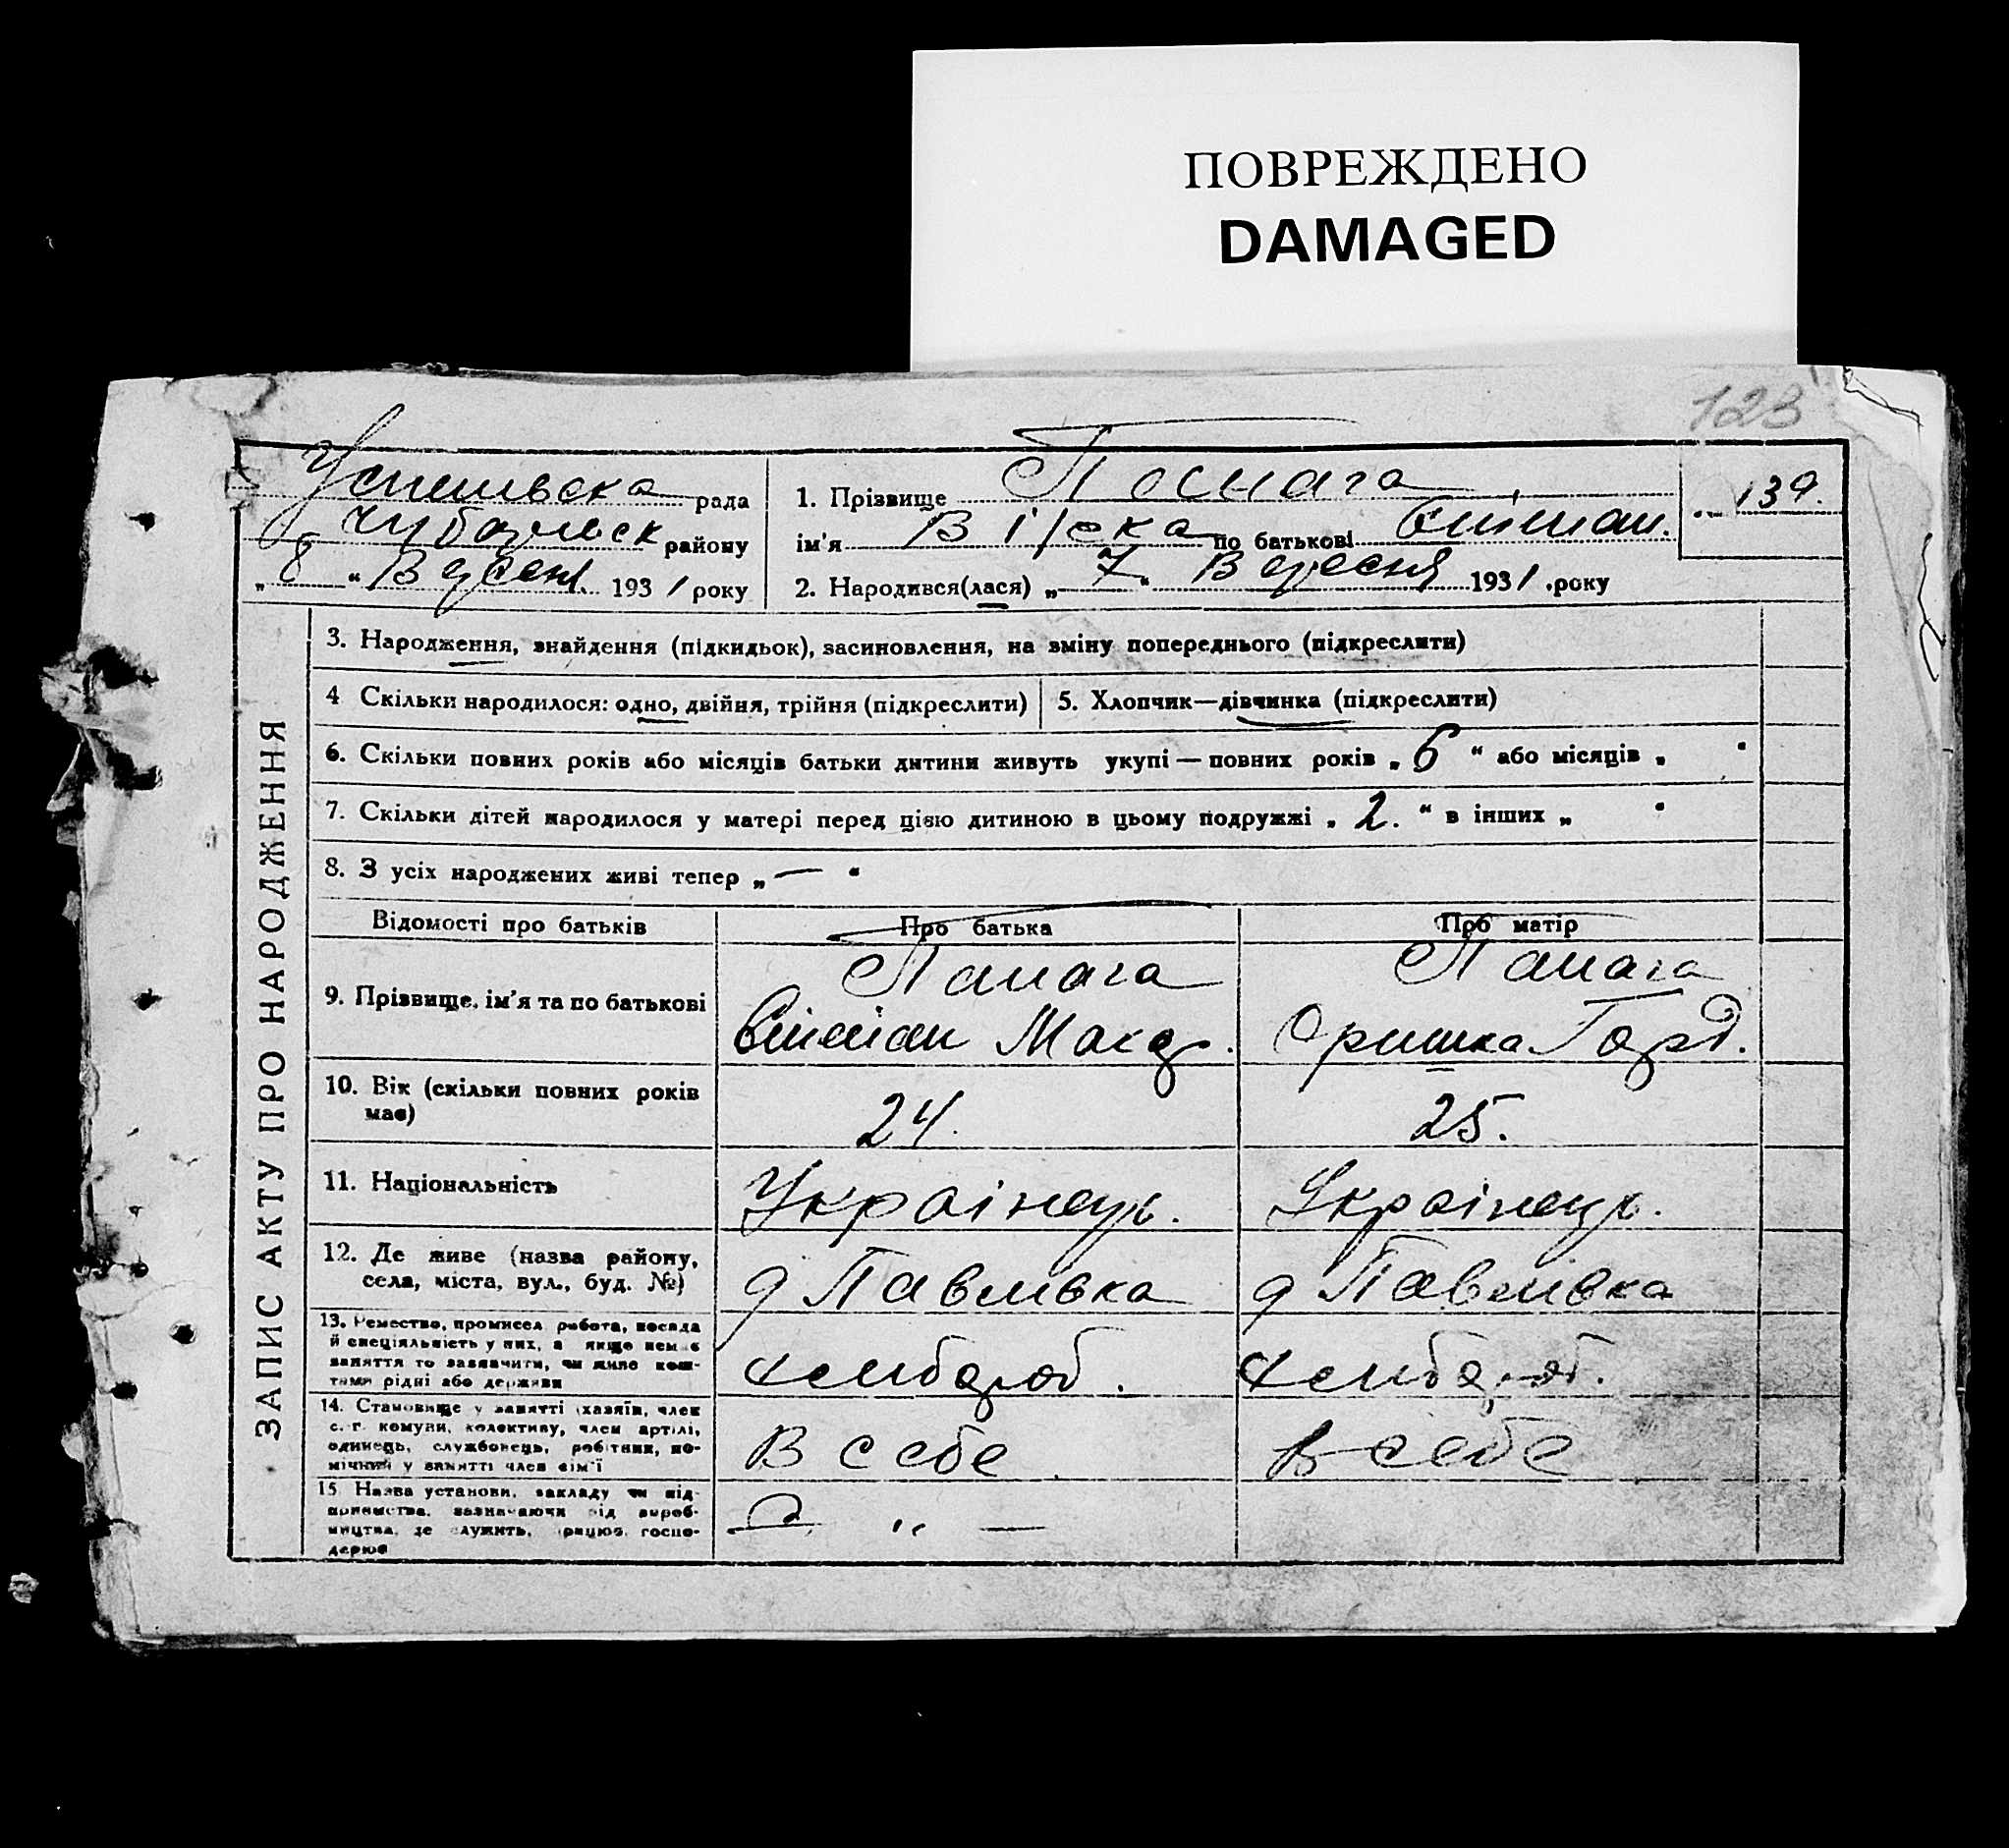 ПОВРЕЖДЕНО
DAMAGED
123
рада
району
„ 8 “ Вересня 1931 року
1. Прізвище
139.
ім'я Вірка по батькові
2. Народився(лася) „ 7 “ Вересня 1931 року
ЗАПИС АКТУ ПРО НАРОДЖЕННЯ
3. Народження, знайдення (підкидьок), засиновлення, на зміну попереднього (підкреслити)
4 Скільки народилося: одно, двійня, трійня (підкреслити)
5. Хлопчик—дівчинка (підкреслити)
6. Скільки повних років або місяців батьки дитини живуть укупі — повних років „ 6 “ або місяців „ “
7. Скільки дітей народилося у матері перед цією дитиною в цьому подружжі „ 2. “ в інших „ “
8. З усіх народжених живі тепер „ — “
Відомості про батьків
Про батька
Про матір
9. Прізвище, ім'я та по батькові
Оришка Горд.
10. Вік (скільки повних років має)
24.
25.
11. Національність
Украінець.
Украінець.
12. Де живе (назва району, села, міста, вул., буд. №)
д Павлівка
д Павлівка
13. Ремество, промисел, робота, посада й спеціяльність у них, а якщо немає заняття то зазначити, чи живе коштами рідні або держави
хлібороб.
хлібороб.
14. Становище у занятті (хазяїн, член с.-г. комуни, колективу, член артілі, одинець, службовець, робітник, помічний у занятті член сім'ї
В себе
В себе
15 Назва установи, закладу чи підприємства, зазначаючи від виробництва, де служить, працює, господарює